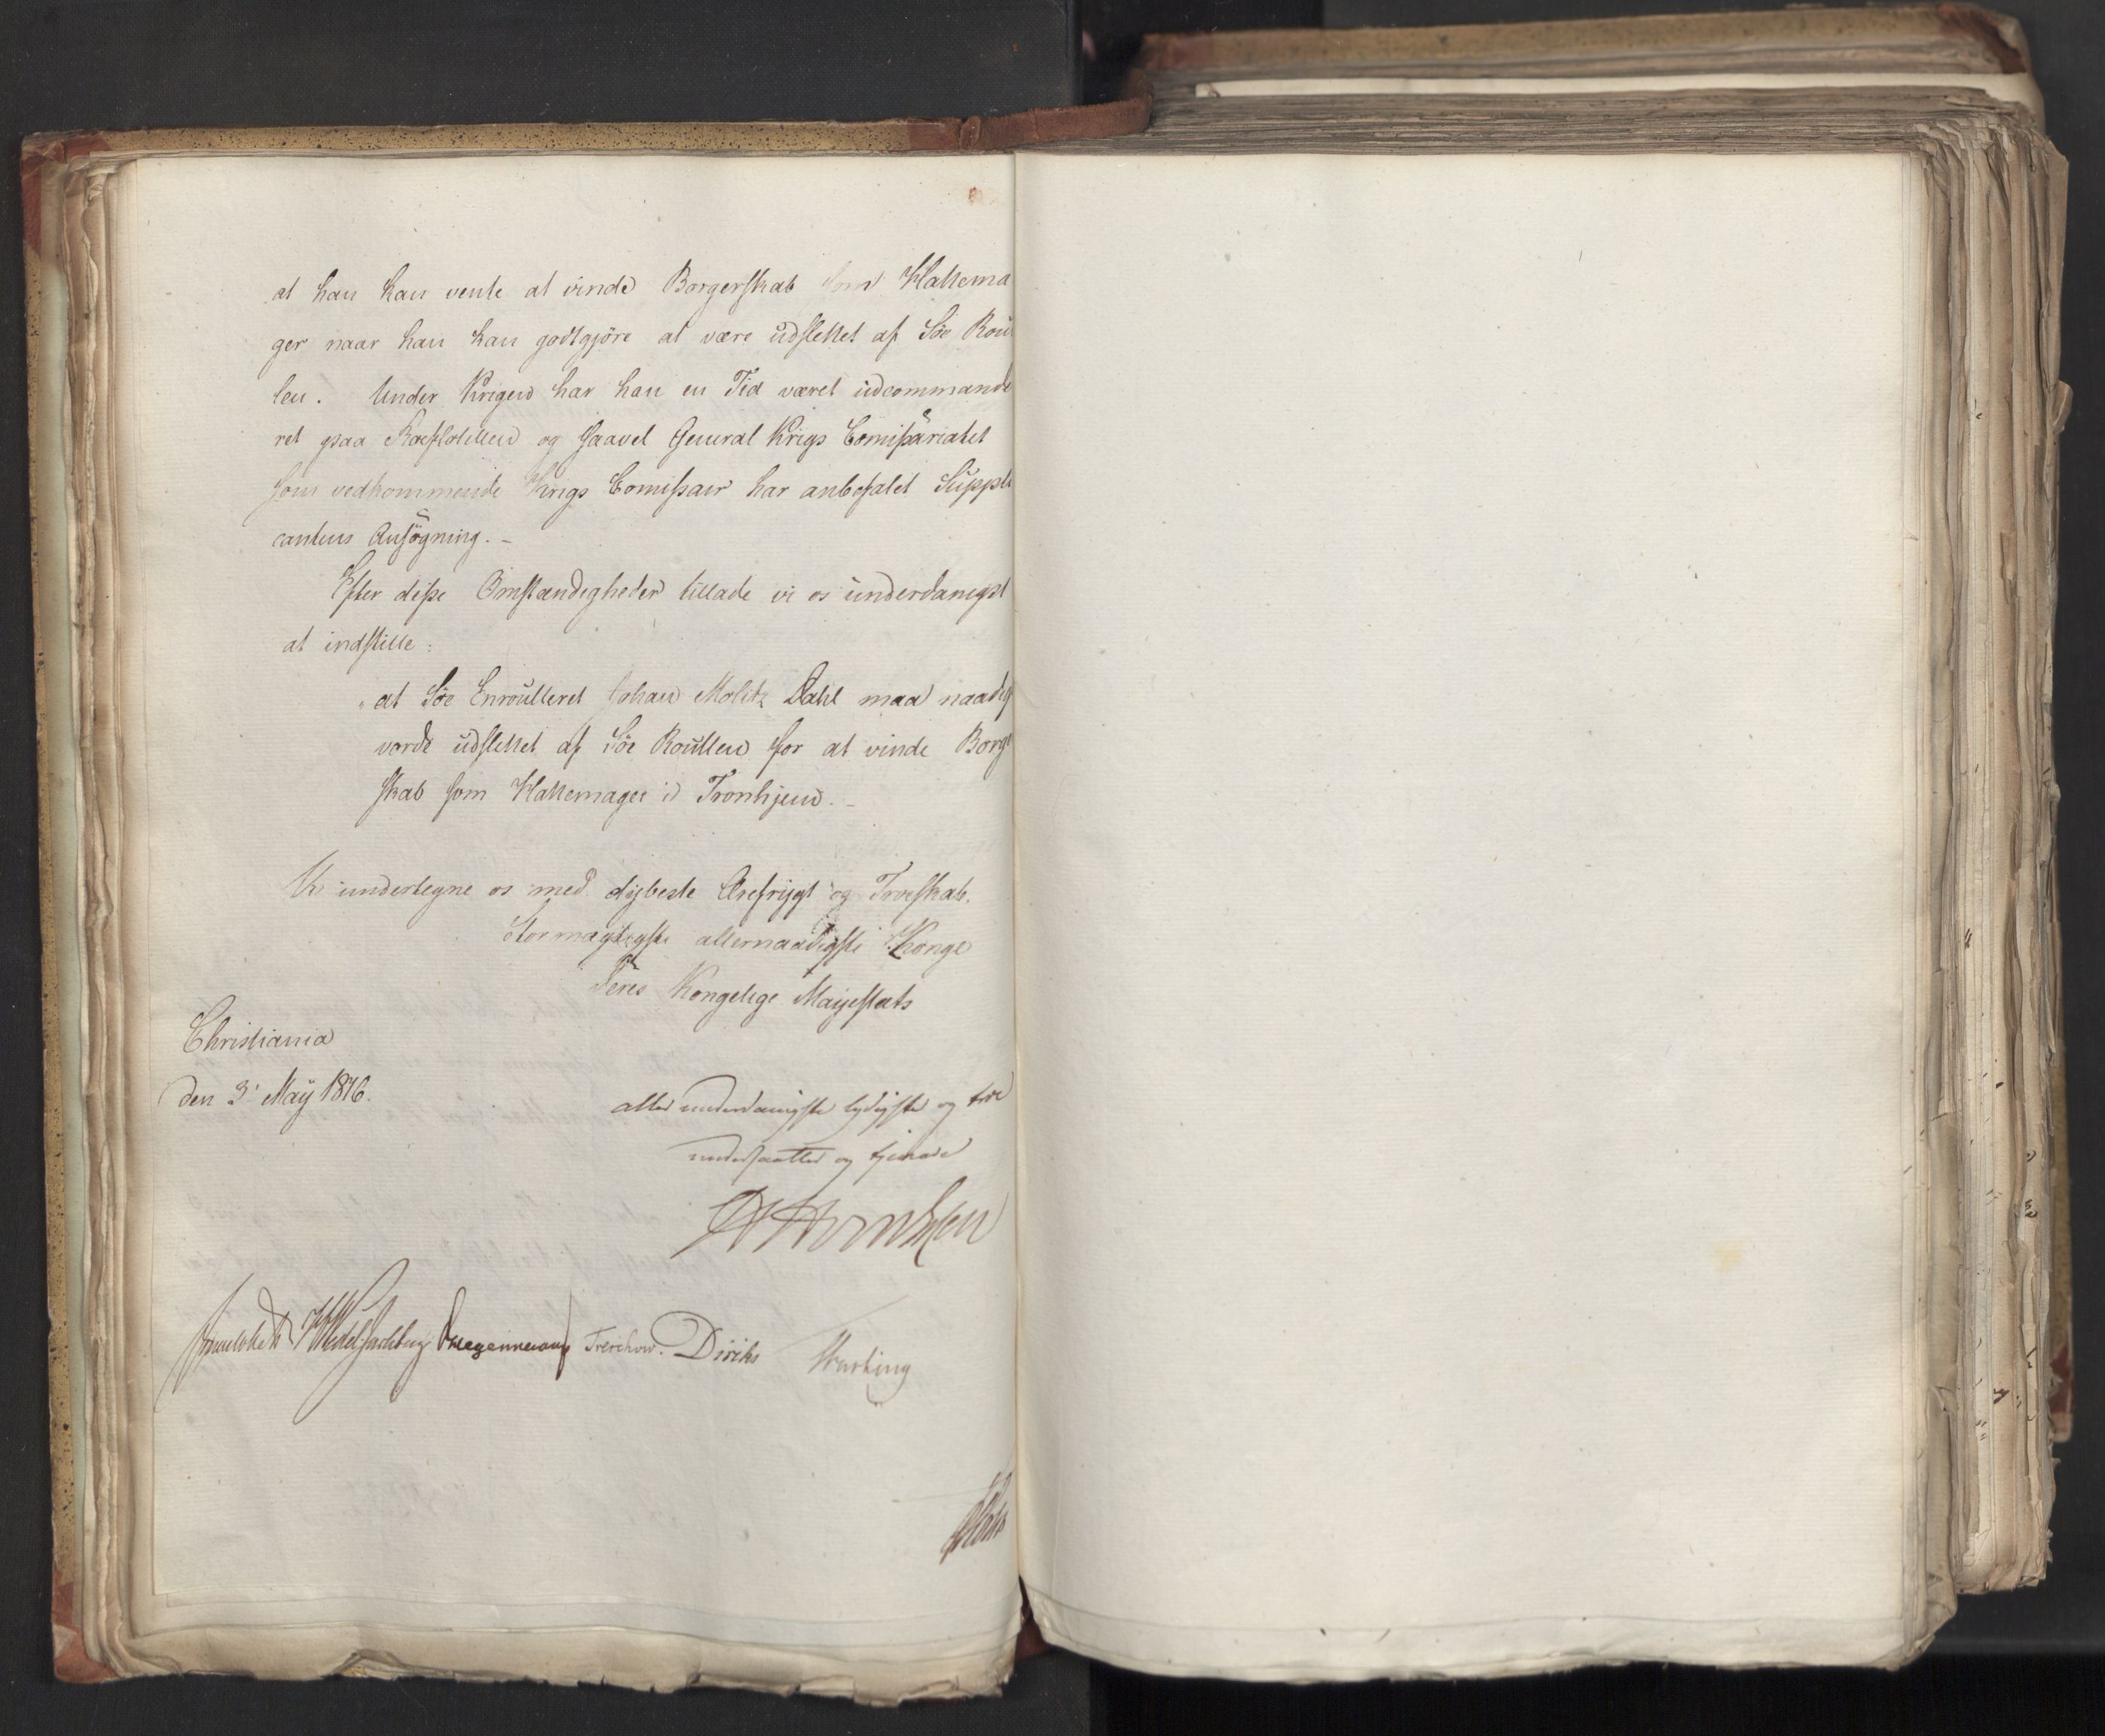 at han kan vente at vinde Borgerskab som Hattema
ger naar han kan godtgjöre at være udslettet af Söe Rou
len. Under Krigen har han en Tid været udcommande
ret paa Roeflotillen og saavel General Krigs Comißariatet
som vedkommende Krigs Comißair har anbefalet Suppli
cantens Ansögning. -
Efter diße Omstændigheder tillade vi os underdanigst
at indstille:
"at Söe Enroulleret Johan Moltz Dahl maa naadigst
vorde udslettet af Söe Roullen for at vinde Borger
skab som Hattemager i Tronhjem. -
Vi undertegne os med dybeste Ærefrygt og Troeskab.
Stormægtigste allernaadigste Konge
Deres Kongelige Majestæts
Christiania
den 3' May 1816.
allerunderdanigste lydigste og troe
undersaatter og tjenere
Sommerhielm Wedel Jarlsberg Krogh Treschow. Diriks